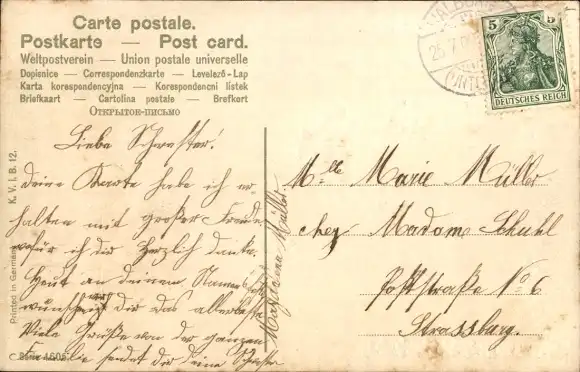 Carte postale.
Postkarte — Post card.
Weltpostverein — Union postale universelle
Dopisnice — Correspondenzkarte — Levelező-Lap
Karta korespondencyjna — Korespondencni listek
Briefkaart — Cartolina postale — Brefkort
Открытое-письмо
5 5
DEUTSCHES REICH
25.7.
K. V. i. B. 12.
Printed in Germany
Serie 1605
Liebe Schwester!
deine Karte habe ich er-
halten mit großer Freude
wofür ich dir herzlich danke.
Heut an deinem Namens
wünscht dir das allerbeste
Viele Grüße von der ganzen
Familie sendet dir deine Schwester
Magdalena Müller
Mlle Marie Müller
chez Madam Schuhl
Poststraße No 6
Strassburg.